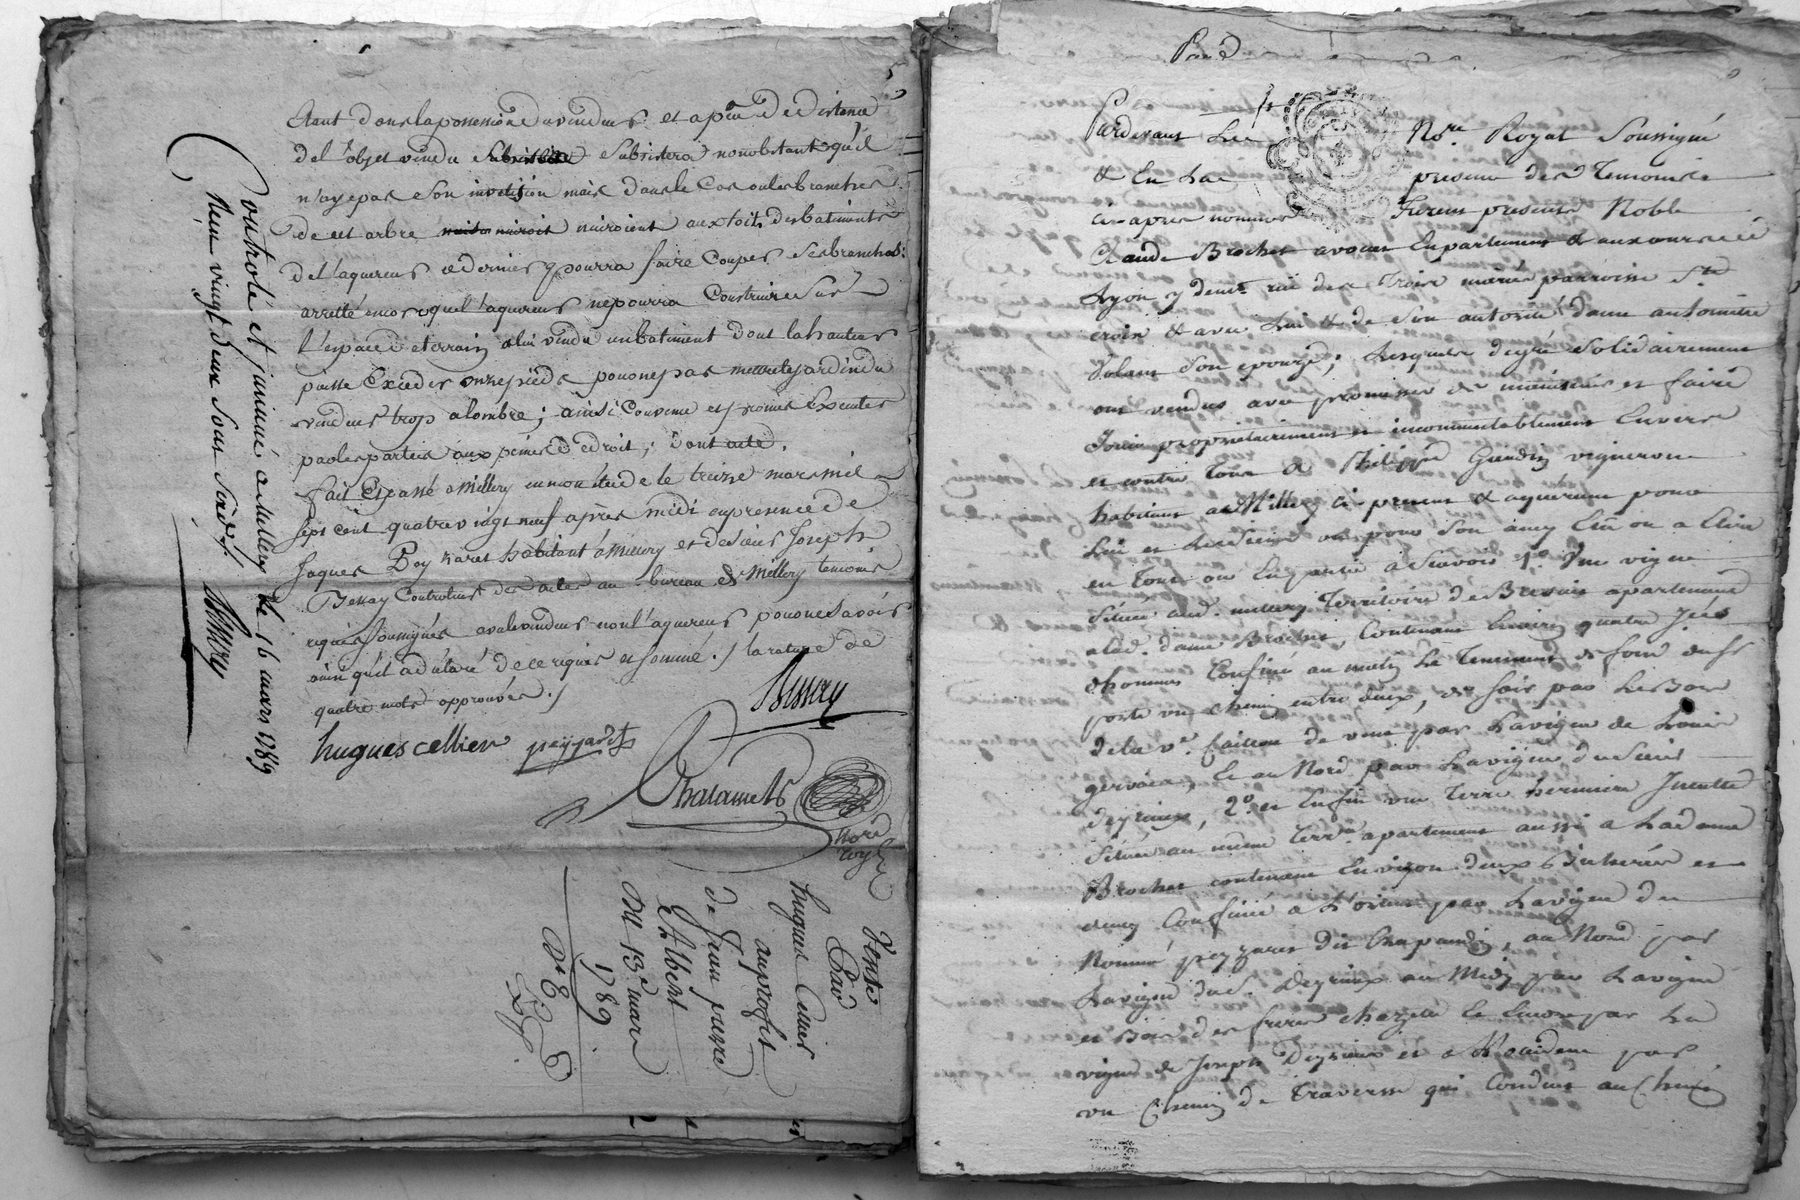 étant dans la possession du vendeur et a peu de distance
de l'objet vendu subsistera nonobstant qu'il
n'aye pas son mais dans le cas ou les branches
de cet arbre nuiroient aux toits des batiments
de l'aquereur ce dernier pourra faire couper ses branches :
arretté encor que l'aquereur ne pourra construire sur
l'espace de terrain a lui vendu un batiment dont la hauteur
puisse exceder onze pieds pour ne pas mettre le jardin du
vendeur trop a l'ombre ; ainsi convenu et promis executer
par les parties aux peines de droit ; dont acte.
fait et passé a Millery en mon etude le treize mars mil
sept cent quatre vingt neuf après midi en presence de
Jaques habitant a Millery et de sieur Joseph
Bessay Controleur des actes au bureau de Millery temoins
requis soussignés avec le vendeur non l'aquereur pour ne savoir
ainsi qu'il a declaré de ce requis et sommé ./ la rature de
quatre mots approuvée ./
Bessay
hugues cellier peyzaret
Chalamel
No.re
royal
Controlé et insinué a Millery le 16 mars 1789
Reçu vingt deux sous six d.
Bessay
Vente
Par
hugues Cellier
au profit
de Jean pierre
Albert
Du 13e mars
1789
Paié
Pardevant Le No.re Royal Soussigné
& En La presence des Temoins
cy apres nommés Furent presents Noble
Claude Brochet avocat En parlement & aux cours de
Lyon y demt. rüe des Trois maries parroisse Ste
croix & avec Lui & de Son autorité dame antoinette
Volant Son epouze ; Lesquels de gré Solidairement
ont vendus avec promesse de maintenir et faire
Jouir proprietairement et incommutablement Envers
et contre Tous a Philippe vigneron
habitant a Millery cy present & aquereur pour
Lui et Les Siens ou pour Son amy Elu ou a Elire
en tout ou En partie a Scavoir 1.º Une vigne
Située aud. millery Territoire de apartenant
a lad. dame Brochet, Contenant Environ quatre
d'hommes Confiné au midy Le Tenement de fond
porte un chemin entre deux, de soir par Le Bois
de la ve. de vent par La vigne de Louis
gervais, Et au Nord par La vigne du Sieur
Deyrieux, 2.º et Enfin une Terre hermiere Inculte
Située au même Terr.re apartenant aussi a La dame
Brochet contenant Environ deux bicherées et
demy Confiné a L'orient par La vigne du
Nommé peyzaret dit au Nord par
La vigne dud. Deyrieux au Midy par La vigne
et Bois des freres Et Encore par La
vigne de Joseph Deyrieux et a L'occident par
un Chemin de Traverse qui Conduit au Chemin